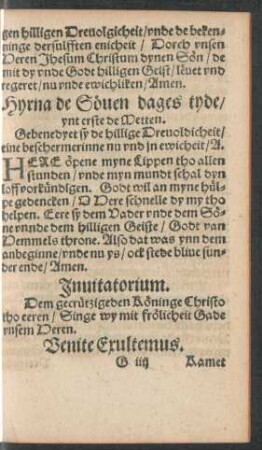 gen hilligen Dreuolgicheit / vnde de beken-
ninge dersulfften enicheit / Dorch vnsen
Heren Jhesum Christum dynen Sön / de
mit dy vnde Godt hilligen Geist / leuet vnd
regeret / nu ynde ewichliken / Amen.
Hyrna de Söuen dages tyde /
ynt erste de Metten.
Gebenedyet sy de hillige Dreuoldicheit /
eine beschermerinne nu vnd jn ewicheit / A.
HERE öpene myne Lippen tho allen
stunden / vnde myn mundt schal dyn
loff vorkündigen. Godt wil an myne hül-
pe gedencken / O Here schnelle dy my tho
helpen. Eere sy dem Vader vnde dem Sö-
ne vnnde dem hilligen Geiste / Godt van
Hemmels throne. Also dat was ynn dem
anbeginne / vnde nu ys / ock stede bliue sun-
der ende / Amen.
Inuitatorium.
Dem gecrützigeden Köninge Christo
tho eeren / Singe wy mit frölicheit Gade
vnsem Heren.
Venite Exultemus.
G iiij Kamet